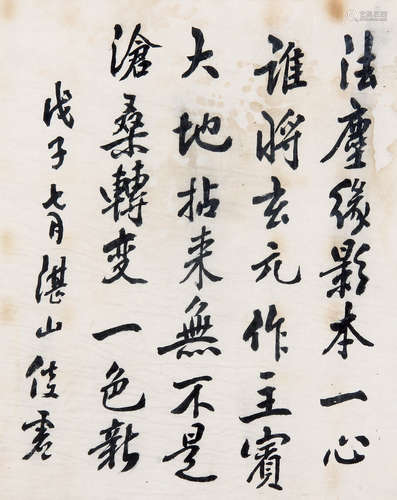 法塵緣影本一心
誰將玄元作主賓
大地拈来無不是
滄桑轉变一色新
戊子七月湛山倓虛